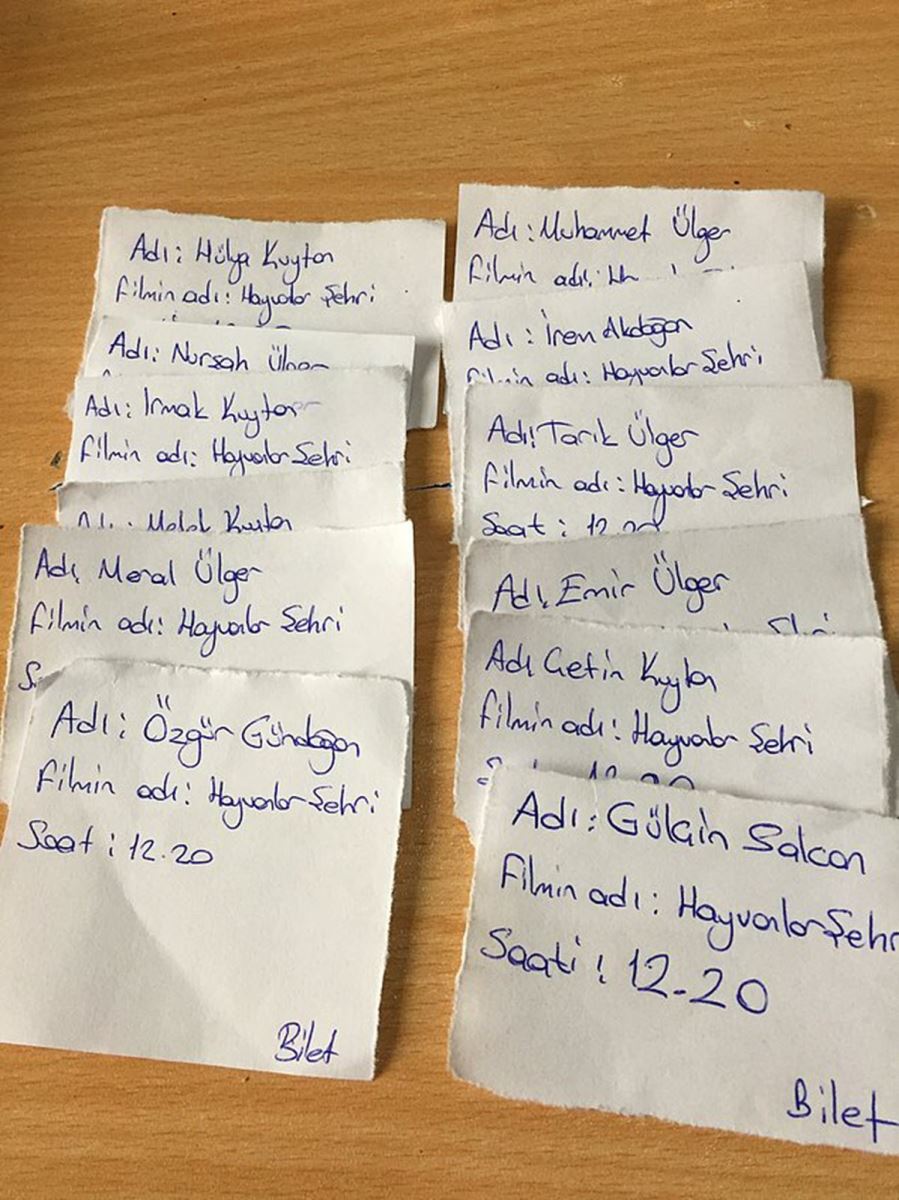 Adı: Hülya Kuytan
filmin adı: Hayvalar Şehri
Adı: Nurşah Ülger
Adı: Irmak Kuytan
filmin adı: Hayvanlar Şehri
Adı: Melek Kuytan
Adı, Meral Ülger
filmin adı: Hayvanlar Şehri
Adı: Özgür Gündoğan
filmin adı: Hayvanlar Şehri
Saat: 12.20
Bilet
Adı: Muhammet Ülger
filmin adı:
Adı: İrem Akdoğan
filmin adı: Hayvanlar Şehri
Adı: Tarık Ülger
filmin adı: Hayvanlar Şehri
Saat: 12.20
Adı, Emir Ülger
Adı Çetin Kuytan
filmin adı: Hayvanlar Şehri
12.20
Adı: Gülçin Salcan
filmin adı: Hayvanlar Şehr
Saati: 12.20
Bilet